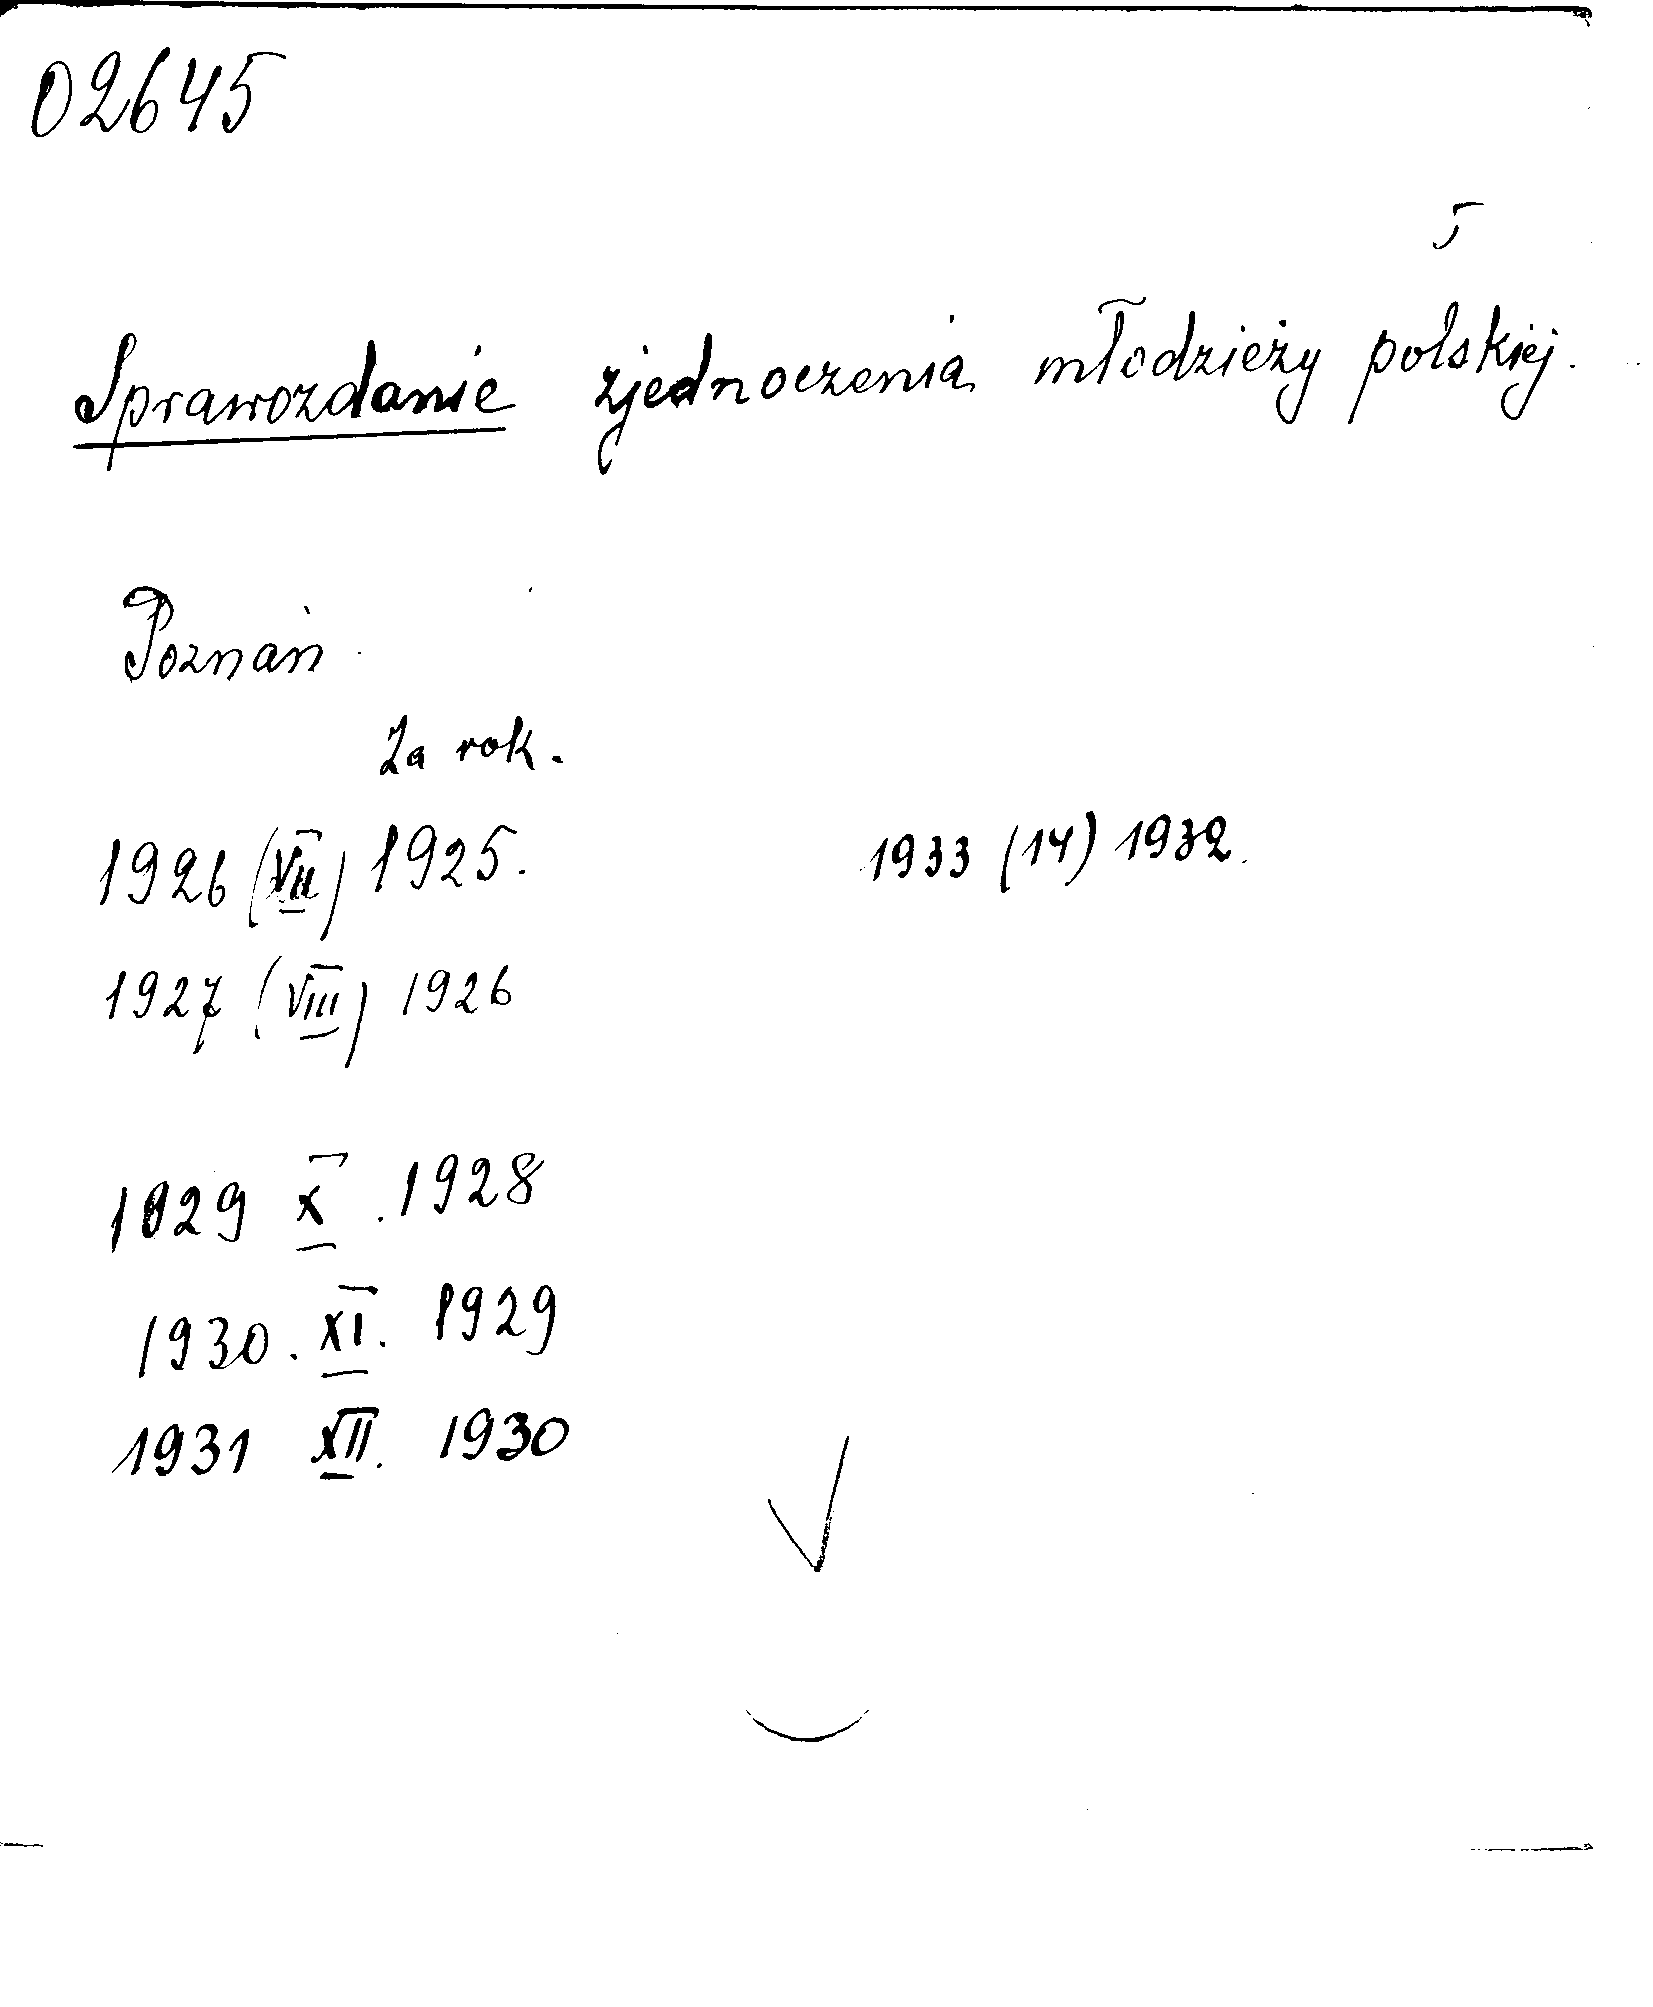 02645
Sprawozdanie zjednoczenia młodzieży polskiej.
Poznań
Za rok.
1926 (VII) 1925. 1933 (14) 1932.
1927 (VIII) 1926
1929 X . 1928
1930. XI. 1929
1931 XII. 1930